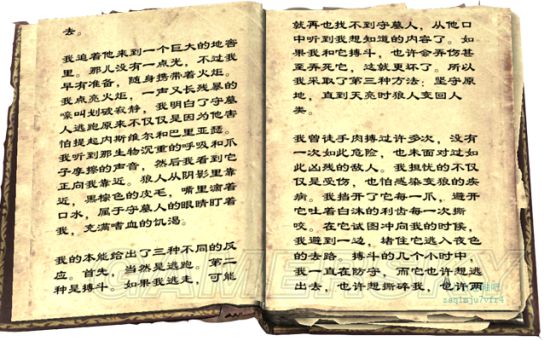 去。
我追着他来到一个巨大的地窖
里。那儿没有一点光，不过我
早有准备，随身携带着火炬。
我点亮火炬，一声又长残暴的
嚎叫划破寂静，我明白了守墓
人逃跑原来不仅仅是因为他害
怕提起内斯维尔和巴里亚瑟。
我听到那生物沉重的呼吸和爪
子摩擦的声音，然后我看到它
正向我靠近。狼人从阴影里靠
近，黑棕色的皮毛，嘴里滴着
口水，属于守墓人的眼睛盯着
我，充满嗜血的饥渴。
我的本能给出了三种不同的反
应。首先，当然是逃跑。第二
种是搏斗。如果我逃走，可能
就再也找不到守墓人，从他口
中听到我想知道的内容了。如
果我和它搏斗，也许会弄伤甚
至弄死它，这就更坏了。所以
我采取了第三种方法：坚守原
地，直到天亮时狼人变回人
类。
我曾徒手肉搏过许多次，没有
一次如此危险，也未面对过如
此凶残的敌人。我担忧的不仅
仅是受伤，也怕感染变狼的疾
病。我挡开了它每一爪，避开
它吐着白沫的利齿每一次撕
咬。在它试图冲向我的时候，
我避到一边，堵住它逃入夜色
的去路。搏斗的几个小时中，
我一直在防守，而它也许想逃
出去，也许想撕碎我，也许两
GAMERSKY
zaqlmju7vfr4